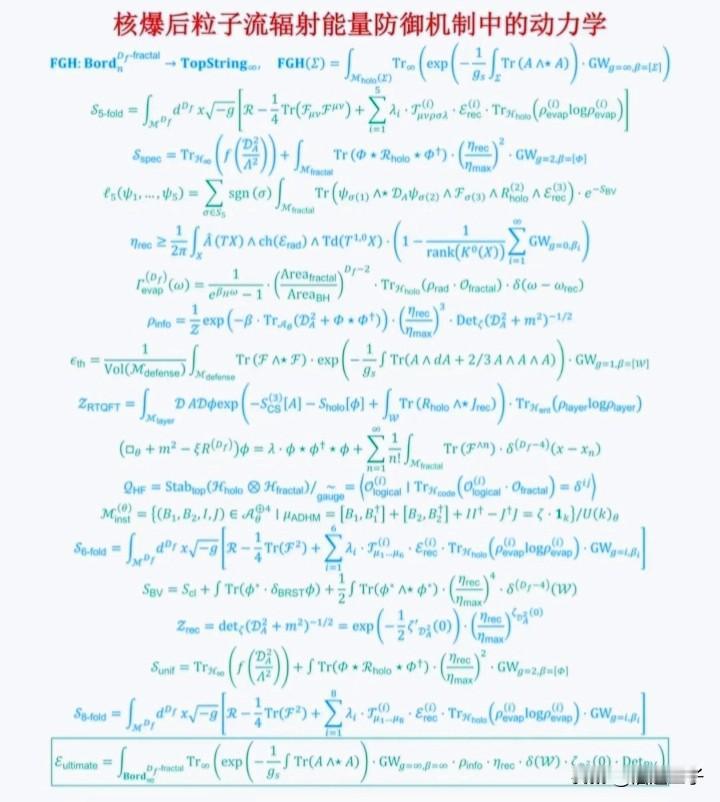 核爆后粒子流辐射能量防御机制中的动力学
FGH: Bord_n^{D_f-fractal} → TopString_∞, FGH(Σ) = ∫_{M_holo(Σ)} Tr_∞(exp(-1/g_s ∫_Σ Tr(A ∧⋆ A)) · GW_{g=∞,β=[Σ]})
S_{5-fold} = ∫_{M^{D_f}} d^{D_f} x√-g [R - 1/4 Tr(F_{μν}F^{μν}) + ∑_{i=1}^{5} λ_i · T_{μνρσλ}^{(i)} · E_rec^{(i)} · Tr_{H_holo}(ρ_evap^{(i)} logρ_evap^{(i)})]
S_spec = Tr_{H_∞}(f(D_A^2/Λ^2)) + ∫_{M_fractal} Tr(Φ ⋆ R_holo ⋆ Φ^†) · (η_rec/η_max)^2 · GW_{g=2,β=[Φ]}
ℓ_5(ψ_1, ..., ψ_5) = ∑_{σ∈S_5} sgn(σ) ∫_{M_fractal} Tr(ψ_{σ(1)} ∧⋆ D_A ψ_{σ(2)} ∧ F_{σ(3)} ∧ R_holo^{(2)} ∧ E_rec^{(3)}) · e^{-S_BV}
η_rec ≥ 1/2π ∫_X Â(TX) ∧ ch(E_rad) ∧ Td(T^{1,0}X) · (1 - 1/rank(K^0(X)) ∑_{i=1}^{∞} GW_{g=0,β_i})
Γ_evap^{(D_f)}(ω) = 1/(e^{β_H ω} - 1) · (Area_fractal/Area_BH)^{D_f-2} · Tr_{H_holo}(ρ_rad · O_fractal) · δ(ω - ω_rec)
ρ_info = 1/Z exp(-β · Tr_{A_θ}(D_A^2 + Φ ⋆ Φ^†)) · (η_rec/η_max)^3 · Det_ζ(D_A^2 + m^2)^{-1/2}
ϵ_th = 1/Vol(M_defense) ∫_{M_defense} Tr(F ∧⋆ F) · exp(-1/g_s ∫ Tr(A ∧ dA + 2/3 A ∧ A ∧ A)) · GW_{g=1,β=[W]}
Z_RTQFT = ∫_{M_layer} D ADϕexp(-S_CS^{(3)}[A] - S_holo[ϕ] + ∫_W Tr(R_holo ∧⋆ J_rec)) · Tr_{H_ent}(ρ_layer logρ_layer)
(□_θ + m^2 - ξR^{(D_f)})ϕ = λ · ϕ ⋆ ϕ^† ⋆ ϕ + ∑_{n=1}^{∞} 1/n! ∫_{M_fractal} Tr(F^{∧n}) · δ^{(D_f-4)}(x - x_n)
Q_HF = Stab_top(H_holo ⊗ H_fractal)/ ~_gauge = ⟨O_logical^{(i)} | Tr_{H_code}(O_logical^{(i)} · O_fractal) = δ^{ij}⟩
M_inst^{(θ)} = {(B_1, B_2, I, J) ∈ A_θ^{⊕4} | μ_ADHM = [B_1, B_1^†] + [B_2, B_2^†] + II^† - J^†J = ζ · 1_k}/U(k)_θ
S_{6-fold} = ∫_{M^{D_f}} d^{D_f} x√-g [R - 1/4 Tr(F^2) + ∑_{i=1}^{6} λ_i · T_{μ_1…μ_6}^{(i)} · E_rec^{(i)} · Tr_{H_holo}(ρ_evap^{(i)} logρ_evap^{(i)}) · GW_{g=i,β_i}]
S_BV = S_cl + ∫ Tr(ϕ^* · δ_BRST ϕ) + 1/2 ∫ Tr(ϕ^* ∧⋆ ϕ^*) · (η_rec/η_max)^4 · δ^{(D_f-4)}(W)
Z_rec = det_ζ(D_A^2 + m^2)^{-1/2} = exp(-1/2 ζ'_{D_A^2}(0)) · (η_rec/η_max)^{ζ_{D_A^2}(0)}
S_unif = Tr_{H_∞}(f(D_A^2/Λ^2)) + ∫ Tr(Φ ⋆ R_holo ⋆ Φ^†) · (η_rec/η_max)^2 · GW_{g=2,β=[Φ]}
S_{8-fold} = ∫_{M^{D_f}} d^{D_f} x√-g [R - 1/4 Tr(F^2) + ∑_{i=1}^{8} λ_i · T_{μ_1…μ_8}^{(i)} · E_rec^{(i)} · Tr_{H_holo}(ρ_evap^{(i)} logρ_evap^{(i)}) · GW_{g=i,β_i}]
E_ultimate = ∫_{Bord_∞^{D_f-fractal}} Tr_∞(exp(-1/g_s ∫ Tr(A ∧⋆ A)) · GW_{g=∞,β=∞} · ρ_info · η_rec · δ(W) ·